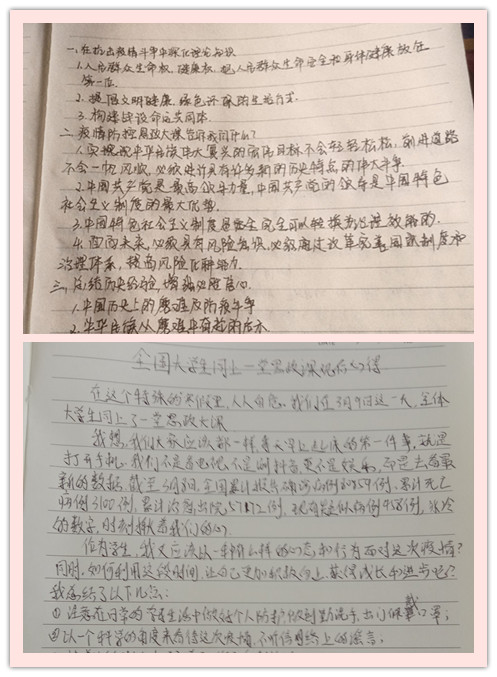 一、在抗击疫情斗争中深化理论知识
1.人民群众生命权、健康权,把人民群众生命安全和身体健康放在
第一位.
2.提倡文明健康、绿色环保的生活方式.
3.构建
二、疫情防控
1.实现中华民族伟大复兴的宏伟目标不会轻轻松松,前进道路
不会一帆风顺,必须进行具有许多新的历史特点的伟大斗争.
2.中国共产党是最高领导力量,中国共产党的领导是中国特色
社会主义制度的最大优势.
3.中国特色社会主义制度是
4.面向未来,必须具有风险意识,必须通过改革完善国家制度和
治理体系,提高风险化解能力.
三、总结历史经验,增强必胜信心.
1.中国历史上的磨难及防疫斗争
2.中华民族从磨难中奋起的启示
全国大学生同上一堂思政课观后心得
在这个特殊的寒假里,人人自危。我们在3月9日这一天,全体
大学生同上了一堂思政大课
我想,我们大家应该都一样每天早上起床的第一件事,就是
打开手机。我们不是看电视不是刷抖音更不是娱乐,而是去看最
新的数据。截至3月
病例3100例,累计治愈出院57
的数字,时刻揪着我们的心.
作为学生,我又应该以一种什么样的心态和行为面对这次疫情?
同时,如何利用这段时间,让自己更加积极向上,获得成长和进步呢?
我总结了以下几点:
①注意在日常的 生活中做好个人防护做到勤洗手,出门佩戴口罩;
②以一个科学的角度来看待这次疫情,不听信网络上的谣言;